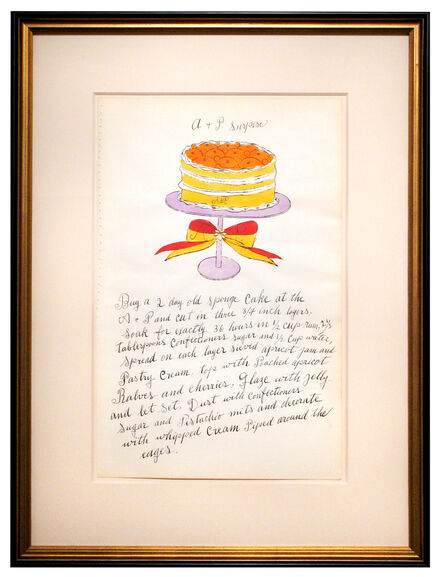 A + P. Surprise
A+P
Buy a 2 day old sponge cake at the
A + P and cut in three 3/4 inch layers,
soak for exactly 36 hours in ½ cup rum, 2
tablespoons confectioners sugar and ½ cup water,
Spread on each layer sieved apricot jam and
Pastry Cream, top with Poached apricot
Halves and cherries, Glaze with jelly
and let set, Dust with confectioners
Sugar and Pistachio nuts and decorate
with whipped Cream Piped around the
edges.